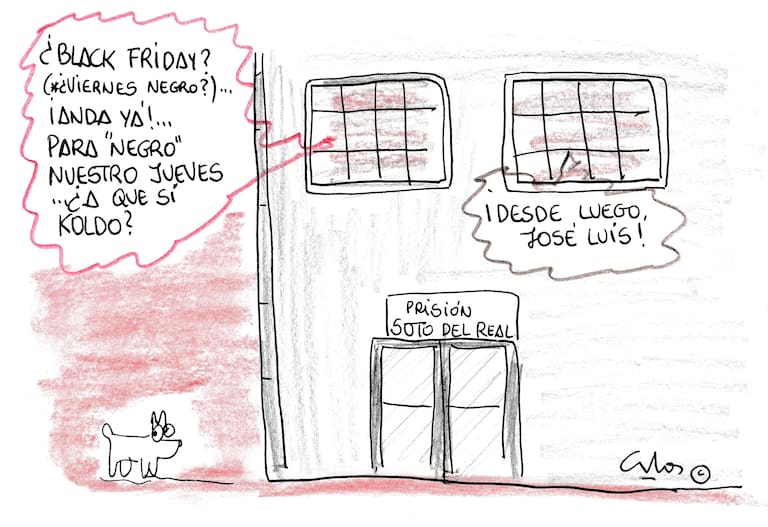 ¿BLACK FRIDAY?
(*¿VIERNES NEGRO?)...
¡ANDA YA!...
PARA "NEGRO"
NUESTRO JUEVES
...¿A QUE SÍ
KOLDO?
¡DESDE LUEGO,
JOSÉ LUÍS!
PRISIÓN
SOTO DEL REAL